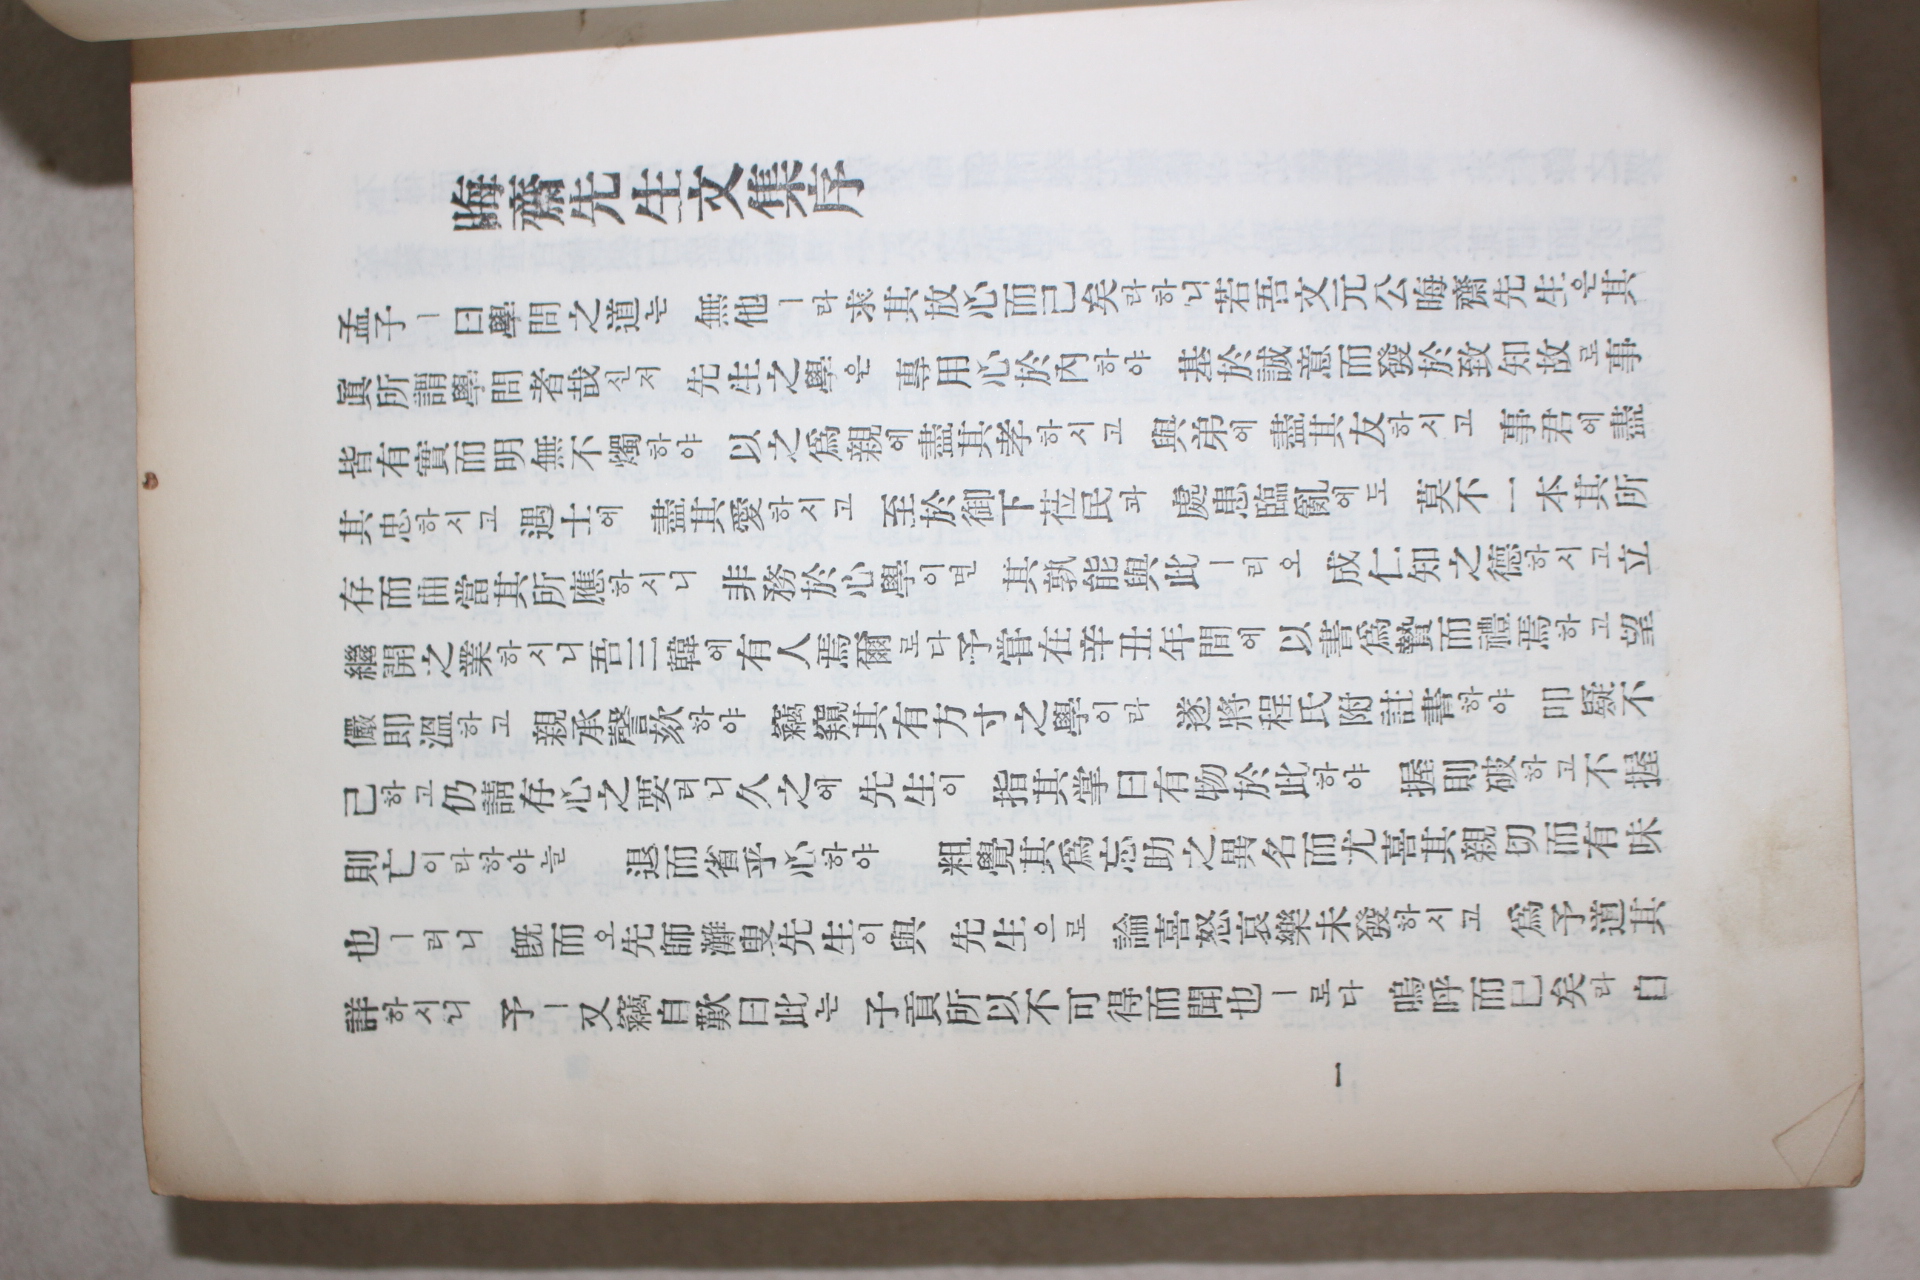 晦齋先生文集序
孟子ㅣ曰學問之道는 無他ㅣ라 求其放心而已矣라하니 若吾文元公晦齋先生은 其
眞所謂學問者哉신저 先生之學은 專用心於內하야 基於誠意而發於致知故로 事
皆有實而明無不燭하야 以之爲親에 盡其孝하시고 與弟에 盡其友하시고 事君에 盡
其忠하시고 遇士에 盡其愛하시고 至於御下莅民과 處患臨亂에도 莫不一本其所
存而曲當其所應하시니 非務於心學이면 其孰能與此ㅣ리오 成仁知之德하시고 立
繼開之業하시니 吾三韓에 有人焉爾로다 予嘗在辛丑年間에 以書爲贄而禮焉하고 望
儼即溫하고 親承謦欬하야 竊窺其有方寸之學이라 遂將程氏附註書하야 叩疑不
已하고 仍請存心之要러니 久之에 先生이 指其掌曰有物於此하야 握則破하고 不握
則亡이라하야늘 退而省乎心하야 粗覺其爲忘助之異名而尤喜其親切而有味
也ㅣ러니 旣而오 先師灘叟先生이 與 先生으로 論喜怒哀樂未發하시고 爲予道其
詳하시니 予ㅣ 又竊自歎曰此는 子貢所以不可得而聞也ㅣ로다 嗚呼而已矣라 白
一